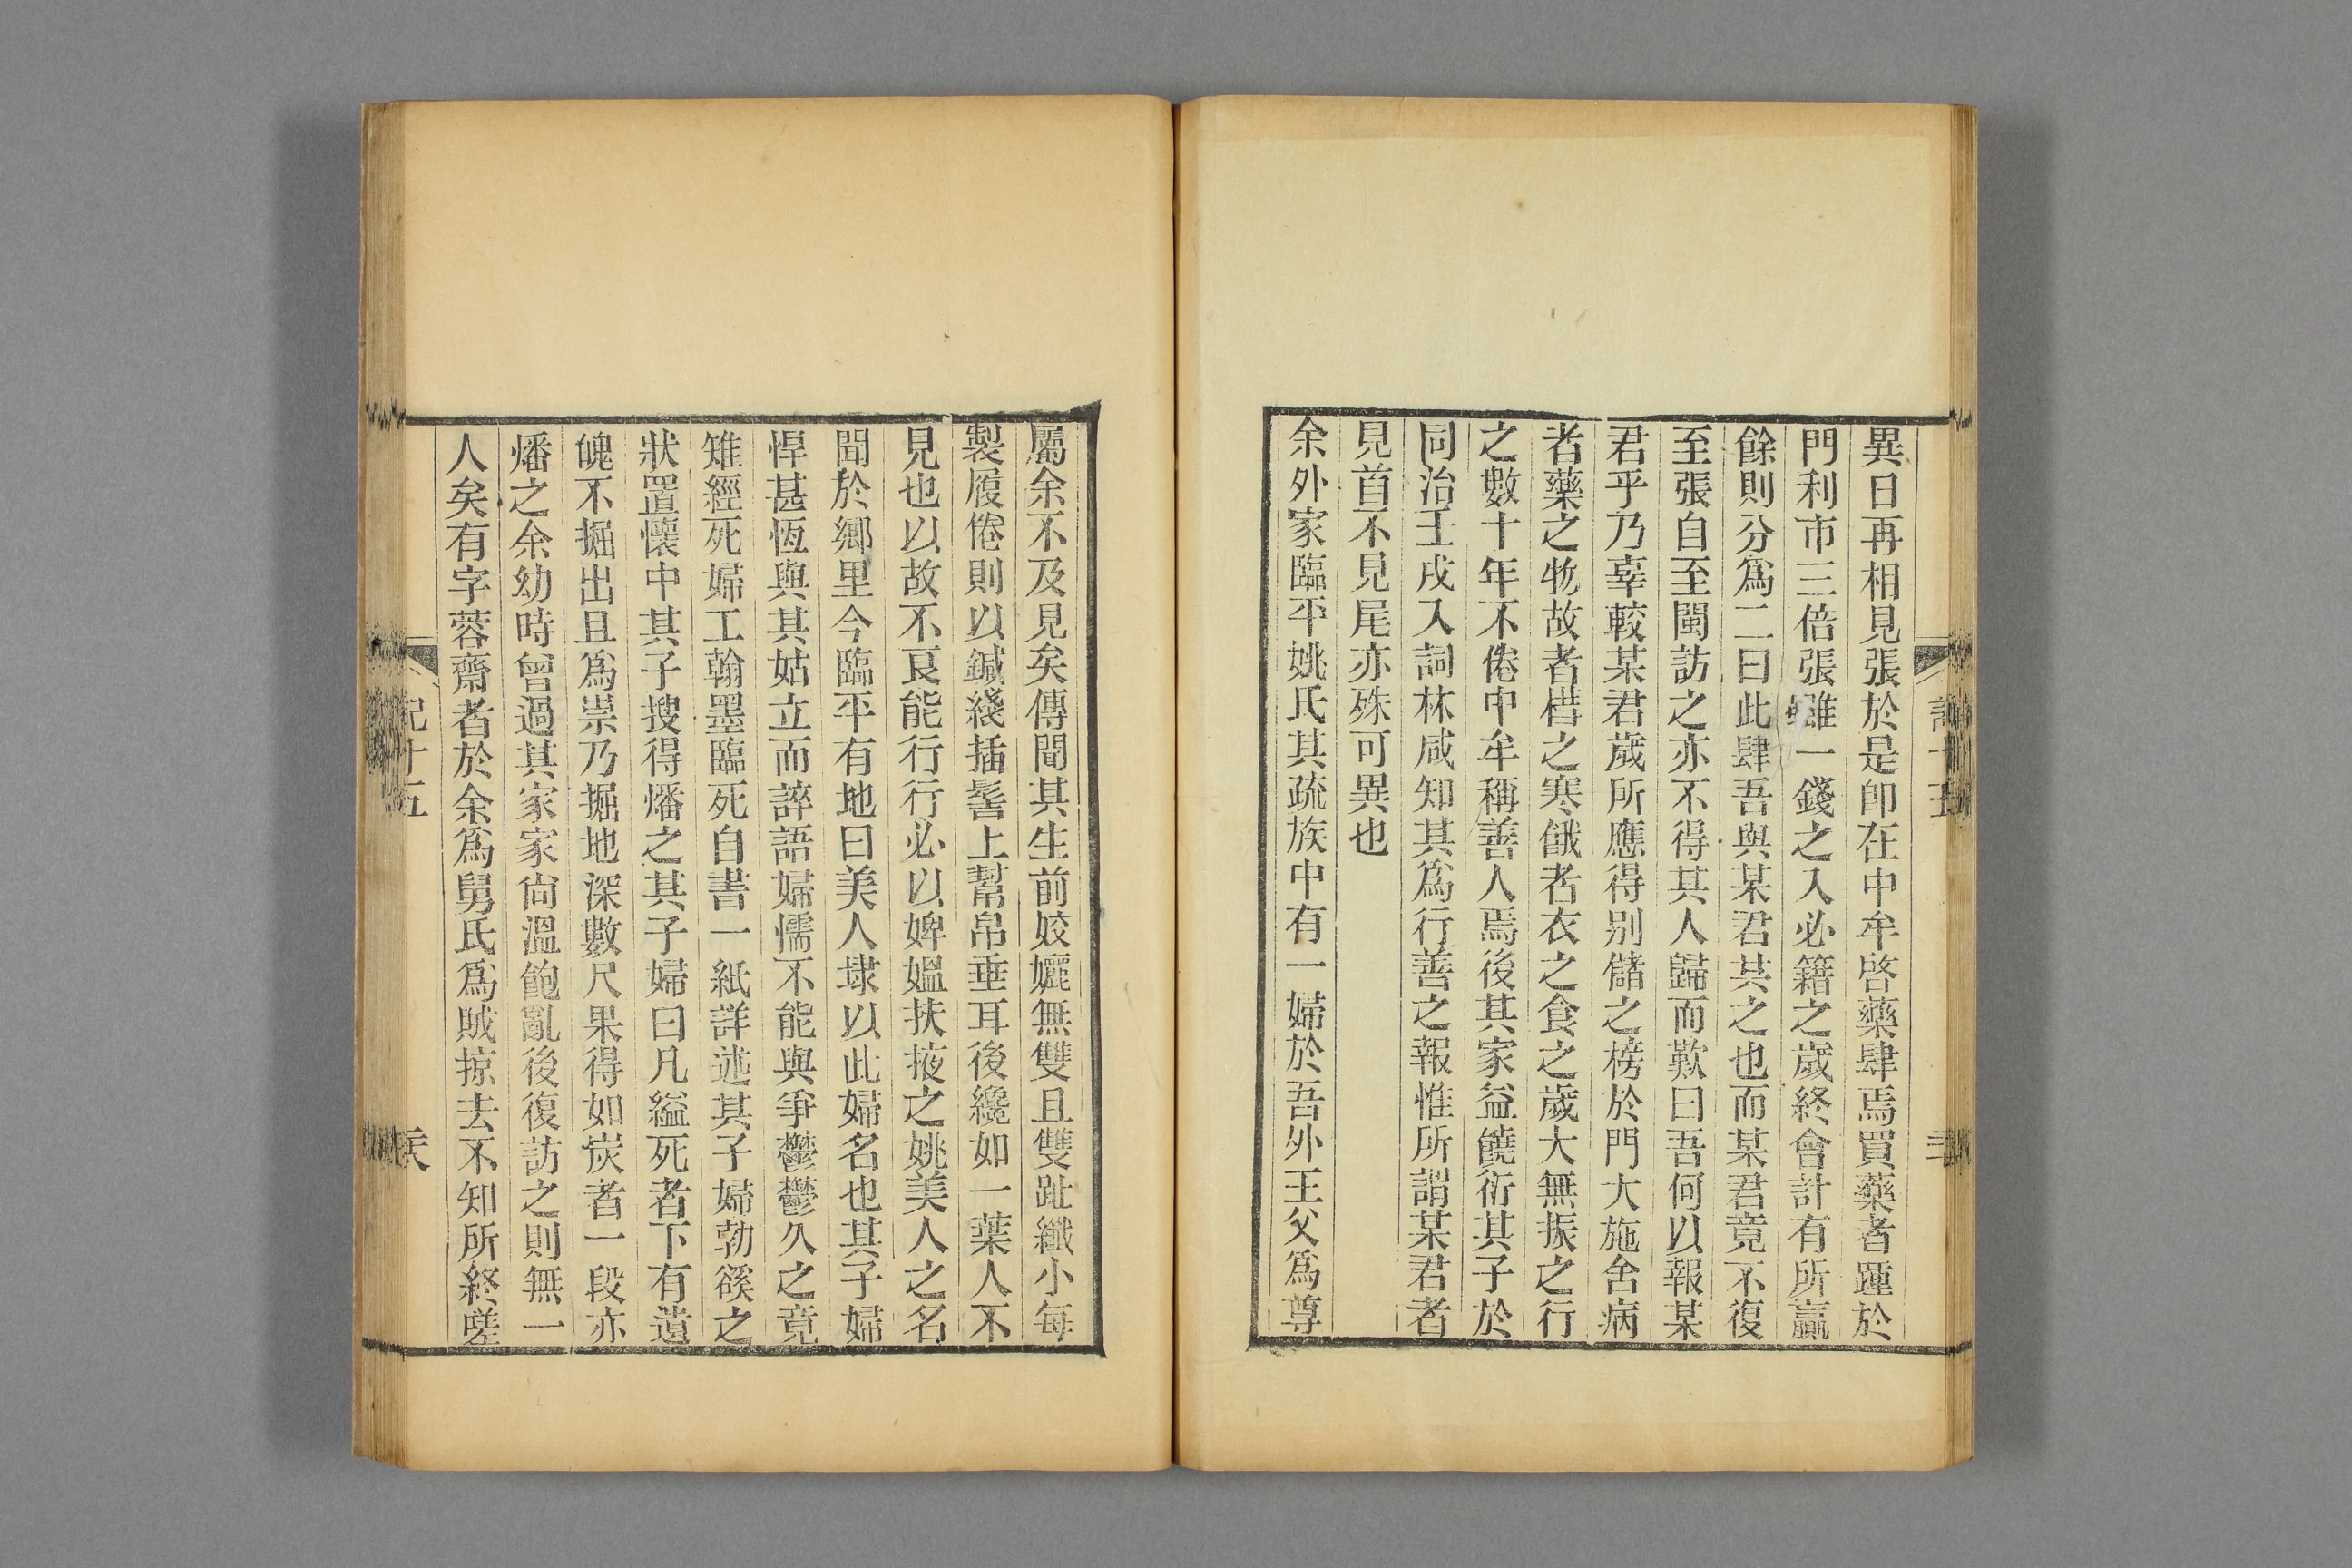 異日再相見張於是卽在中牟啓藥肆焉買藥者踵於
門利市三倍張雖一錢之入必籍之歲終會計有所贏
餘則分爲二曰此肆吾與某君共之也而某君竟不復
至張自至閩訪之亦不得其人歸而歎曰吾何以報某
君乎乃辜較某君歲所應得别儲之榜於門大施舍病
者藥之物故者槥之寒餓者衣之食之歲大無振之行
之數十年不倦中牟稱善人焉後其家益饒衍其子於
同治壬戌入詞林咸知其爲行善之報惟所謂某君者
見首不見尾亦殊可異也
余外家臨平姚氏其疏族中有一婦於吾外王父爲尊
屬余不及見矣傳聞其生前姣孋無雙且雙趾纖小每
製履倦則以鍼綫插髻上幫帛垂耳後纔如一葉人不
見也以故不良能行行必以婢媼扶掖之姚美人之名
聞於鄉里今臨平有地曰美人埭以此婦名也其子婦
悍甚恆與其姑立而誶語婦懦不能與爭鬱鬱久之竟
雉經死婦工翰墨臨死自書一紙詳述其子婦勃豀之
狀置懷中其子搜得燔之其子婦曰凡縊死者下有遺
魄不掘出且爲祟乃掘地深數尺果得如炭者一段亦
燔之余幼時曾過其家家尙溫飽亂後復訪之則無一
人矣有字蓉齋者於余爲舅氏爲賊掠去不知所終嗟
記十五